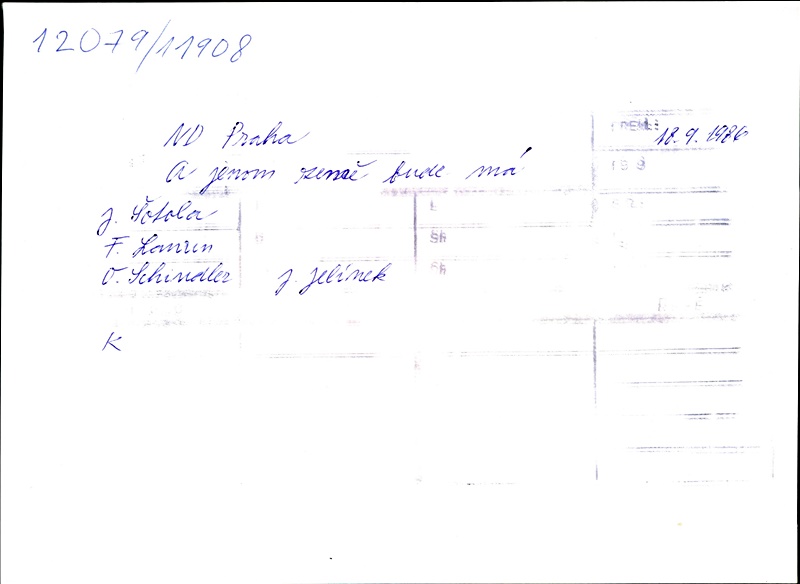 12079/11908
ND Praha
18.9.1986
A jenom země bude má
J. Šotola
F. Laurin
O. Schindler J. Jelínek
K